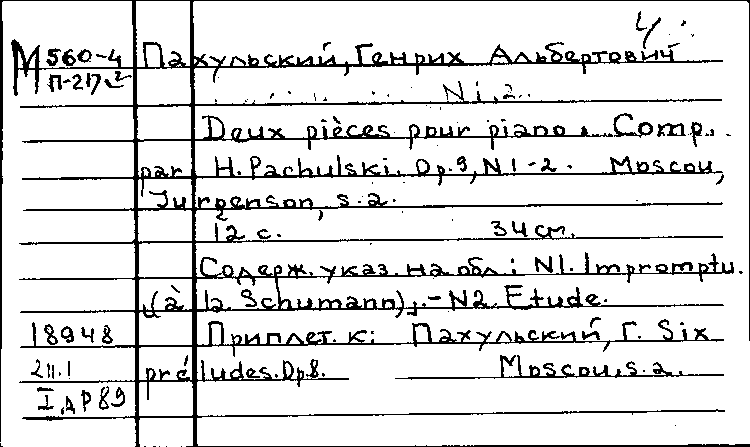 4
М 560-4 Пахульский, Генрих Альбертович
П-217
N 1, 2.
Deux pièces pour piano. Comp.
par H. Pachulski. Op. 9, N 1-2. Moscou,
Jurgenson, s.a.
12 с. 34 см.
Содерж. указ. на обл.: N1. Impromptu.
(à la Schumann), - N2. Etude.
18948 Приплет. к: Пахульский, Г. Six
préludes. Op. 8. Moscou, s.a.
I. др 89